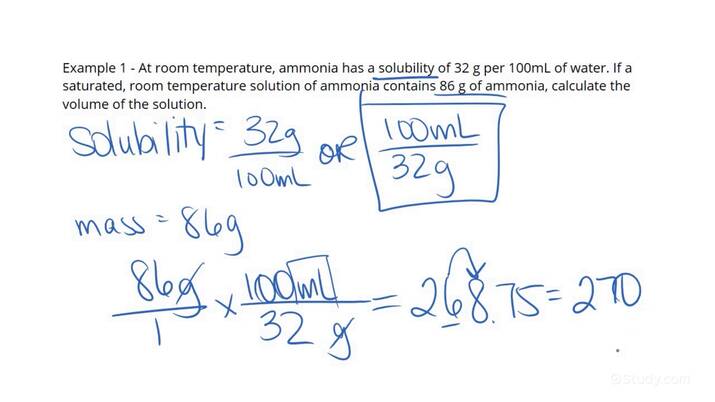 Example 1 - At room temperature, ammonia has a solubility of 32 g per 100mL of water. If a
saturated, room temperature solution of ammonia contains 86 g of ammonia, calculate the
volume of the solution.
Solubility = 32g / 100mL OR 100mL / 32g
mass = 86g
86g / 1 x 100mL / 32 g = 268.75 = 270
@Study.com